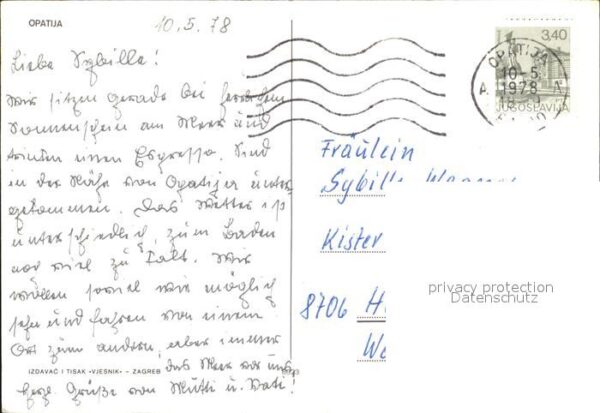 OPATIJA
10.5.78
Liebe Sybille!
Wir sitzen gerade bei herrlichem
Sonnenschein am Meer und
trinken einen Espresso. Sind
in der Nähe von Opatija unter-
gekommen. Das Wetter ist
unterschiedlich, zum Baden
noch viel zu kalt. Wir
wollen soviel wie möglich
sehen und fahren von einem
Ort zum andern, aber immer
das Meer vor uns
IZDAVAČ I TISAK «VJESNIK» – ZAGREB
herzl. Grüße von Mutti u. Vati!
3,40
JUGOSLAVIJA
OPATIJA
10-5
1978
A A
Fräulein
Sybille
Kister
8706 H
We
privacy protection
Datenschutz